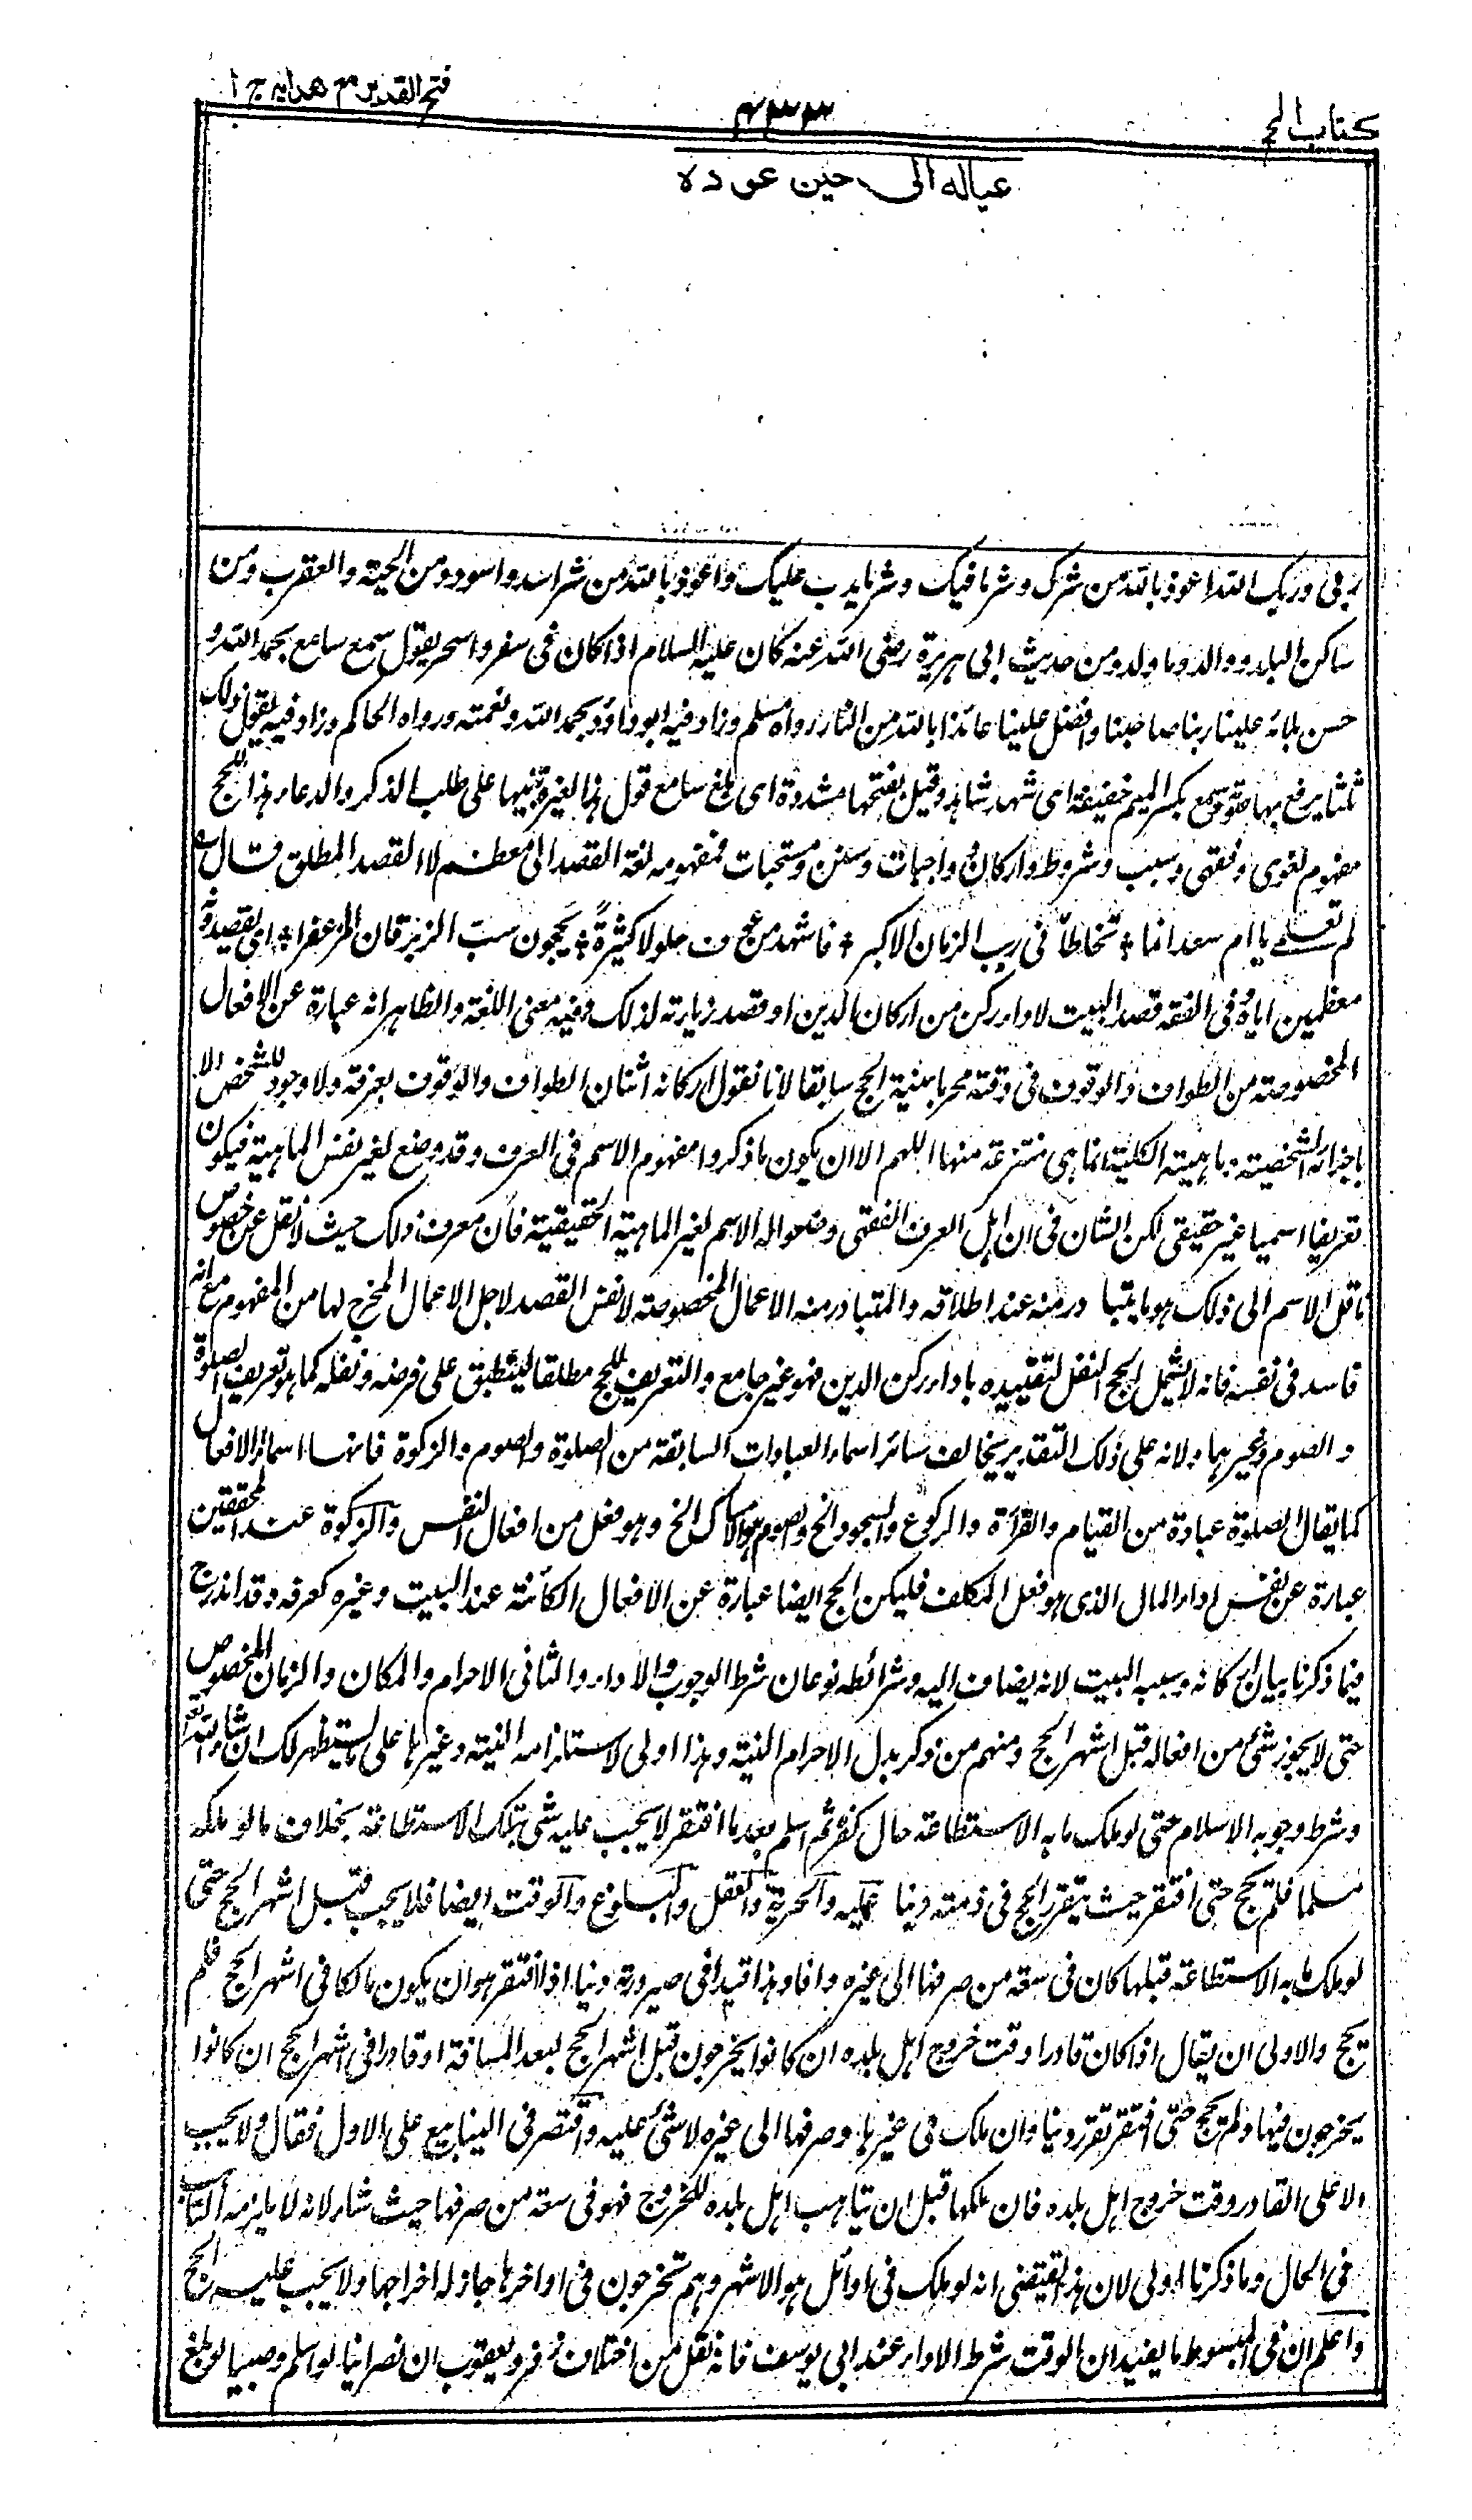 كتاب الحج
٤٣٣
فتح القدير مع هدايه ج ١
عياله الى حين عوده
ربي وربك الله اعوذ بالله من شرك وشر ما فيك وشر ما يدب عليك واعوذ بالله من شر اسد واسود ومن الحية والعقرب ومن
ساكن البلد ووالد وما ولد ومن حديث ابى هريرة رضى الله عنه كان عليه السلام اذا كان فى سفر واسحر يقول سمع سامع بحمد الله و
حسن بلائه علينا ربنا صاحبنا وافضل علينا عائذا بالله من النار رواه مسلم وزاد فيه ابو داؤد بحمد الله ونعمته ورواه الحاكم وزاد فيه يقول ذلك
ثلثا يرفع بها صوته وسمع بكسر الميم خفيفة اى شهد شاهد وقيل بفتحها مشددة اى بلغ سامع قولى هذا لغيره تنبيها على طلب الذكر والدعاء هذا للحج
مفهوم لغوى وفقهى وسبب وشروط واركان وواجبات وسنن ومستحبات فمفهومه لغة القصد الى معظم لا القصد المطلق قال
لم تعلمى يا ام سعد انما * تخاطأنى ريب الزمان الاكبر * فاشهد من عوف حلولا كثيرة * يحجون سب الزبرقان المزعفرا * اى يقصدونه
معظمين اياه وفى الفقه قصد البيت لاداء ركن من اركان الدين او قصد زيارته لذلك ففيه معنى اللغة والظاهر انه عبارة عن الافعال
المخصوصة من الطواف والوقوف فى وقته محرما بنية الحج سابقا لانا نقول اركانه اثنان الطواف والوقوف بعرفة ولا وجود للشخص الا
باجزائه الشخصية وماهيته الكلية انما هى منتزعة منها اللهم الا ان يكون ما ذكروا مفهوم الاسم فى العرف وقد وضع لغير نفس الماهية فيكون
تعريفا اسميا غير حقيقى لكن الشان فى ان اهل العرف الفقهى وضعوا له الاسم لغير الماهية الحقيقية فان معرف ذلك حيث لا نقل عن خصوص
ناقل الاسم الى ذلك هو ما يتبادر منه عند اطلاقه والمتبادر منه الاعمال المخصوصة لا نفس القصد لاجل الاعمال المخرج لها من المفهوم مع انه
فاسد فى نفسه فانه لا يشمل الحج النفل لتقييده باداء ركن الدين فهو غير جامع والتعريف للحج مطلقا لينطبق على فرضه ونفله كما هو تعريف الصلوة
والصوم وغيرهما ولانه على ذلك التقدير يخالف سائر اسماء العبادات السابقة من الصلوة والصوم والزكوة فانها اسماء للافعال
كما يقال الصلوة عبادة من القيام والقرأة والركوع والسجود الخ والصوم هو الامساك الخ وهو فعل من افعال النفس والزكوة عند المحققين
عبارة عن نفس اداء المال الذى هو فعل المكلف فليكن الحج ايضا عبارة عن الافعال الكائنة عند البيت وغيره كعرفه وقد اندرج
فيما ذكرنا بيان اركانه وسببه البيت لانه يضاف اليه وشرائطه نوعان شرط الوجوب والاداء والثانى الاحرام والمكان والزمان المخصوص
حتى لا يجوز شئ من افعاله قبل اشهر الحج ومنهم من ذكر بدل الاحرام النية وهذا اولى لاستلزامه النية وغيرها على ما سيظهر لك ان شاء الله
وشرط وجوبه الاسلام حتى لو ملك ما به الاستطاعة حال كفره ثم اسلم بعد ما افتقر لا يجب عليه شئ بتلك الاستطاعة بخلاف ما لو ملكه
مسلما فلم يحج حتى افتقر حيث يتقرر الحج فى ذمته دينا عليه والحرية والعقل والبلوغ والوقت ايضا فلا يجب قبل اشهر الحج حتى
لو ملك ما به الاستطاعة قبلها كان فى سعة من صرفها الى غيره وافاد هذا قيدا فى صيرورته دينا اذا افتقر هو ان يكون مالكا فى اشهر الحج فلم
يحج والاولى ان يقال اذا كان قادرا وقت خروج اهل بلده ان كانوا يخرجون قبل اشهر الحج لبعد المسافة او قادرا فى اشهر الحج ان كانوا
يخرجون فيها ولم يحج حتى افتقر تقرر دينا وان ملك فى غيرها وصرفها الى غيره لا شئ عليه واقتصر فى الينابيع على الاول فقال ولا يجب
الا على القادر وقت خروج اهل بلده فان ملكها قبل ان يتاهب اهل بلده للخروج فهو فى سعة من صرفها حيث شاء لانه لا يلزمه التاهب
فى الحال وما ذكرنا اولى لان هذا يقتضى انه لو ملك فى اوائل الاشهر وهم يخرجون فى اواخرها جاز له اخراجها ولا يجب عليه الحج
واعلم ان فى المبسوط ما يفيد ان الوقت شرط الاداء عند ابى يوسف فانه نقل من اختلاف زفر ويعقوب ان نصرانيا لو اسلم وصبيا لو بلغ